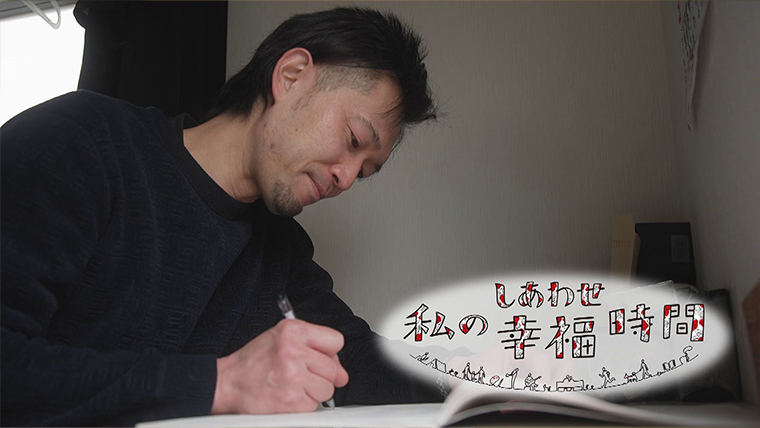 しあわせ
私の幸福時間